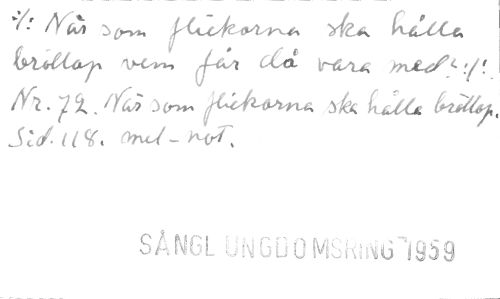 :/: När som flickorna ska hålla
bröllop vem får då vara med? :/:
Nr. 72. När som flickorna ska hålla bröllop.
Sid. 118. mel-not.
SÅNGL UNGDOMSRING 1959